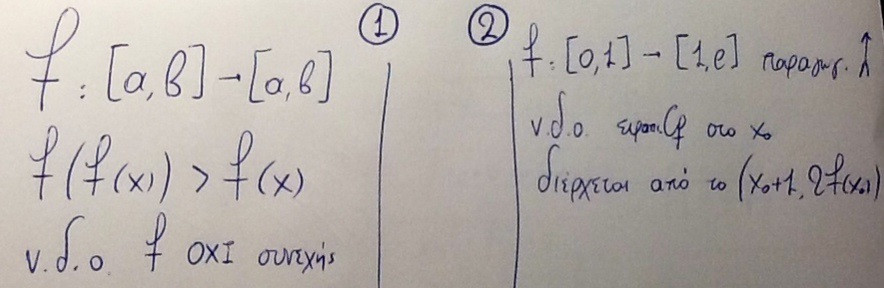 ①
f: [α,β] → [α,β]
f(f(x)) > f(x)
ν.δ.ο. f ΟΧΙ συνεχής
②
f: [0,1] → [1,e] παραγωγ. ↑
ν.δ.ο. εφαπ. Cf στο x₀
διέρχεται από το (x₀+1, 2f(x₀))